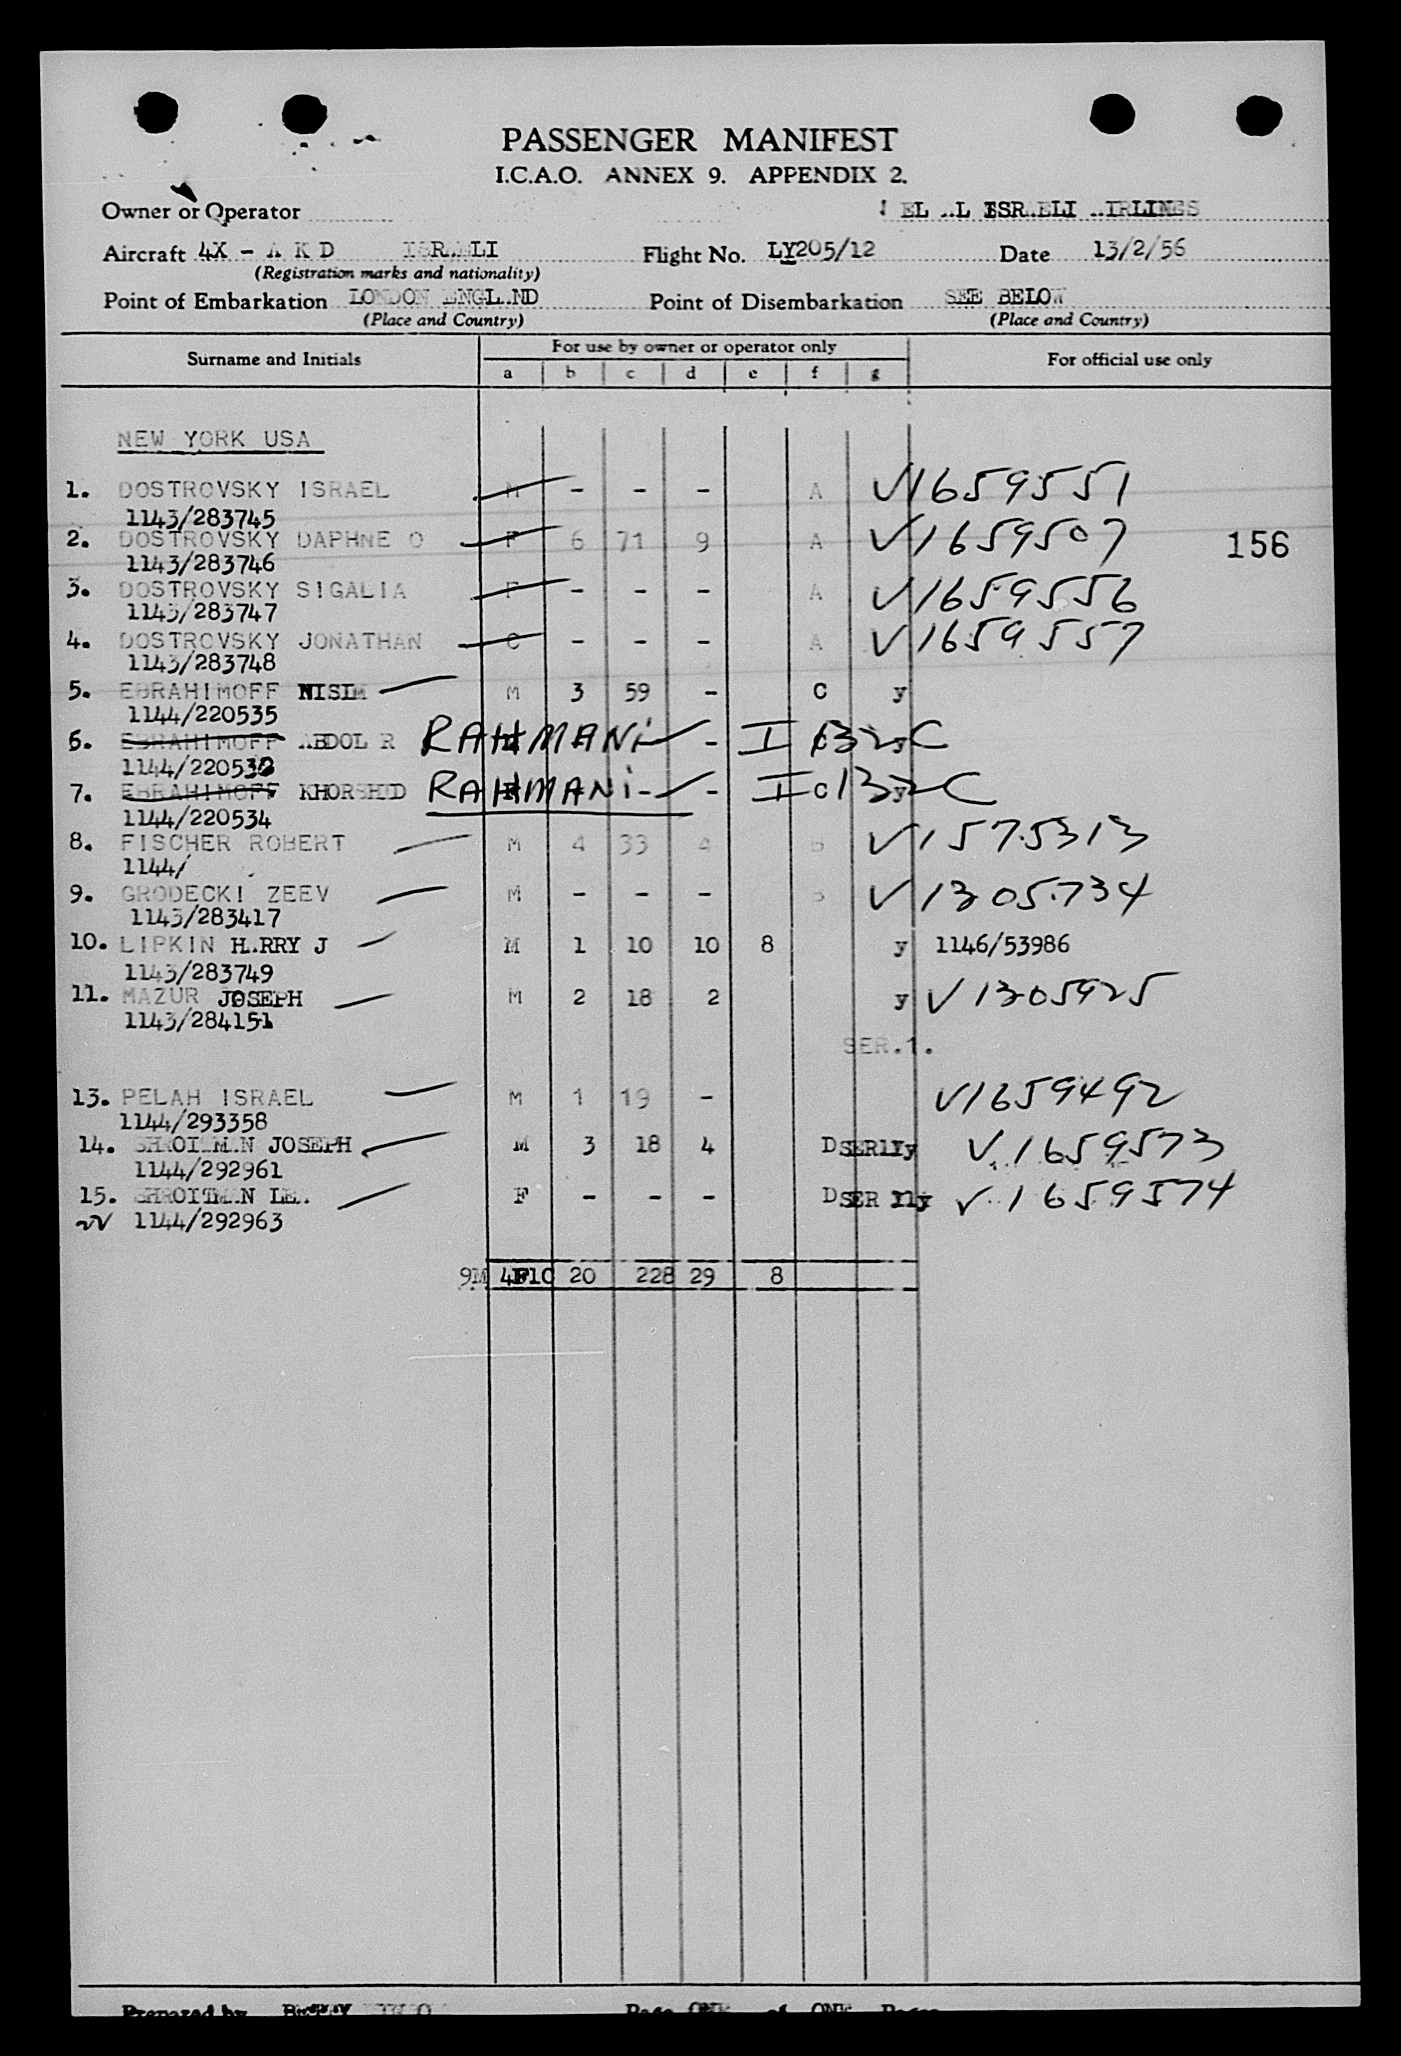 PASSENGER MANIFEST
I.C.A.O. ANNEX 9. APPENDIX 2.
Owner or Operator EL ..L ISR..ELI ..IRLINES
Aircraft 4X - A K D ISR..ELI Flight No. LY205/12 Date 13/2/56
(Registration marks and nationality)
Point of Embarkation LONDON ENGL..ND Point of Disembarkation SEE BELOW
(Place and Country) (Place and Country)
Surname and Initials For use by owner or operator only For official use only
a b c d e f g
NEW YORK USA
1. DOSTROVSKY ISRAEL M - - - A ✓1659551
1143/283745
2. DOSTROVSKY DAPHNE O F 6 71 9 A ✓1659507 156
1143/283746
3. DOSTROVSKY SIGALIA F - - - A ✓1659556
1143/283747
4. DOSTROVSKY JONATHAN C - - - A ✓1659557
1143/283748
5. EBRAHIMOFF NISIM M 3 59 - C y
1144/220535
6. EBRAHIMOFF ..BDOL R RAHMANI - I 132 C
1144/220532
7. EBRAHIMOFF KHORSHID RAHMANI - - I C 132 C
1144/220534
8. FISCHER ROBERT M 4 33 4 B ✓1575313
1144/
9. GRODECKI ZEEV M - - - B ✓1305734
1143/283417
10. LIPKIN H..RRY J M 1 10 10 8 y 1146/53986
1143/283749
11. MAZUR JOSEPH M 2 18 2 y ✓1305925
1143/284151
SER.1.
13. PELAH ISRAEL M 1 19 - ✓1659492
1144/293358
14. SHROITM..N JOSEPH M 3 18 4 D SER1 y ✓1659573
1144/292961
15. SHROITM..N LE.. F - - - D SER 1 y ✓1659574
1144/292963
9M 4F1C 20 228 29 8
Prepared by Page ONE of ONE Pages